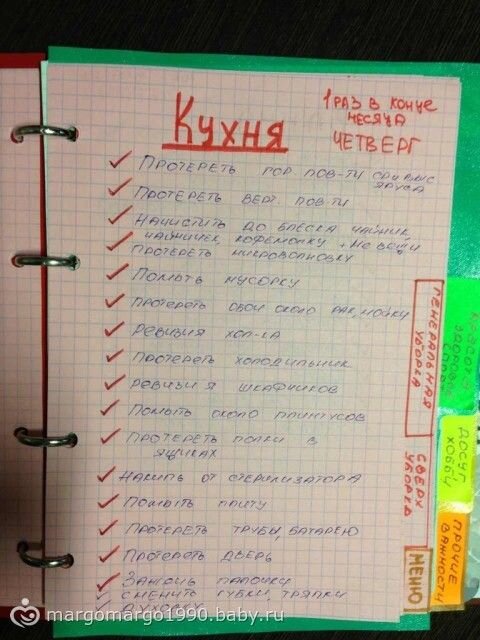 Кухня
1 раз в конце
месяца
четверг
Протереть гор. пов-ти
яруса
Протереть верт. пов-ти
Начистить до блеска чайник
чайничек, кофемолку +
Протереть микроволновку
Помыть мусорку
Протереть обои около рак, мойки
Ревизия хол-ка
Протереть холодильник
Ревизия шкафчиков
Помыть около плинтусов
Протереть полки в
ящиках
Накипь от стерилизатора
Помыть плиту
Протереть трубы, батарею
Протереть дверь
Зажечь палочку
Сменить губки, тряпки
генеральная
уборка
сверх
уборка
меню
красота
здоровье
спорт
досуг
хобби
прочие
важности
margomargo1990.baby.ru